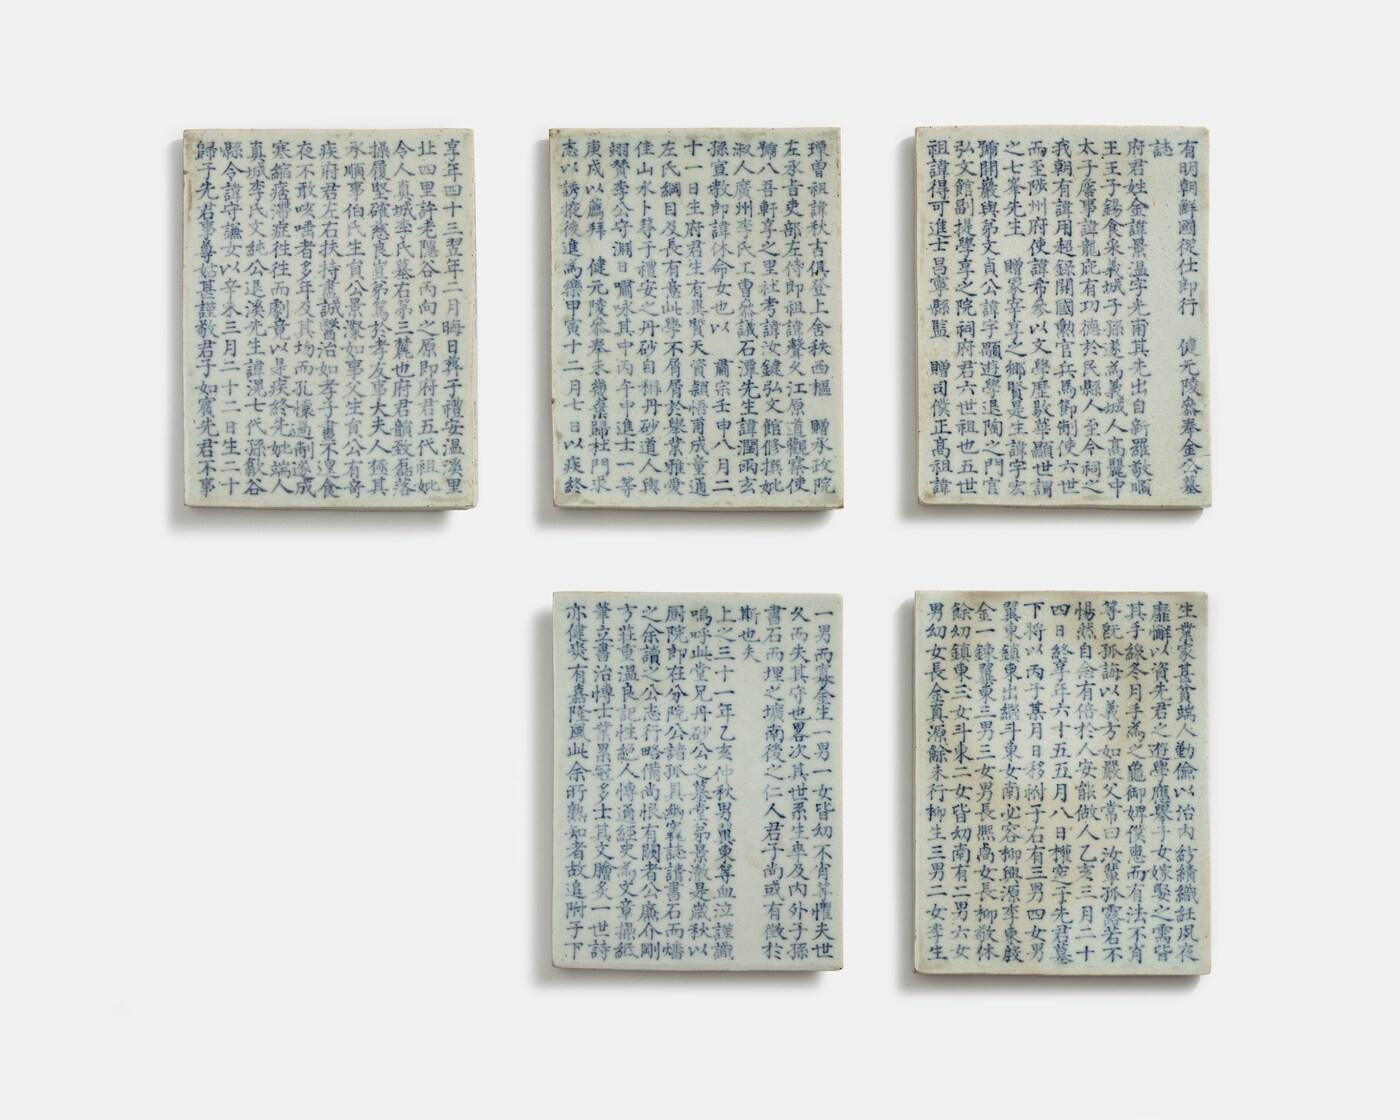 有明朝鮮國從仕郎行　健元陵叅奉金公墓
誌
府君姓金諱景溫字先甫其先出自新羅敬順
王王子鍚食采義城子孫遂爲義城人高麗中
太子詹事諱龍庇有功德於民縣人至今祠之
我朝有諱用超錄開國勳官兵馬節制使六世
而至陜州府使諱希參以文學歷敭華顯世謂
之七峯先生　贈冢宰享之鄉賢是生諱字宏
號開巖與弟文貞公諱字顒遊學退陶之門官
弘文館副提學享之院祠府君六世祖也五世
祖諱得可進士昌寧縣監　贈司僕正高祖諱
曾祖諱秋吉俱登上舍秩西樞　贈承政院
左承旨吏部左侍郎祖諱聲久江原道觀察使
號八吾軒享之里社考諱汝鍵弘文館修撰妣
淑人廣州李氏工曹叅議石潭先生諱潤雨玄
孫宣教郎諱休命女也以　肅宗壬申八月二
十一日生府君生有異質天資穎悟甫成童通
左氏綱目及長有意此學不屑屑於擧業雅愛
佳山水卜于禮安之丹砂自稱丹砂道人與
翊贊李公守淵日嘯咏其中丙午中進士一等
庚戌以薦拜　健元陵叅奉未幾棄歸杜門求
志以誘掖後進爲樂甲寅十二月七日以疾終
享年四十三翌年二月晦日葬于禮安溫溪里
北四里許老隱谷丙向之原即府君五代祖妣
令人真城李氏墓右第三麓也府君韻致磊落
操履堅確慈良豈弟篤於孝友事大夫人極其
承順事伯氏生員公景瀿如事父生員公有奇
疾府君左右扶持虔誠醫治如孝子晝不遑食
夜不敢咳嚏者多年及其塲而孔懷過制遂成
寒縮痰滯症往往而劇竟以是疾終先妣端人
真城李氏文純公退溪先生諱滉七代孫歙谷
縣令諱守謙女以辛未三月二十二日生二十
歸于先君事尊姑甚謹敬君子如賓先君不事
生業家甚貧端人勤儉以治內紡績織紝夙夜
靡懈以資先君之遊學應擧子女嫁娶之需皆
其手線冬月手爲之龜御婢僕惠而有法不肖
等旣孤誨以義方如嚴父常曰汝輩孤露若不
惕然自念有倍於人安能做人乙亥三月二十
四日終享年六十五五月八日權窆于先君墓
下將以丙子某月日移祔于右有三男四女男
翼東鎭東出繼斗東女南必容柳興源李東
金一鍊翼東三男三女男長熙卨女長柳敬休
餘幼鎭東三女斗東二女皆幼南有二男六女
男幼女長金真源餘未行柳生三男二女李生
一男而金生一男一女皆幼不肖等懼夫世
久而失其守也畧次其世系生卒及內外子孫
書石而埋之壙南後之仁人君子尚或有徵於
斯也夫
上之三十一年乙亥仲秋男翼東等血泣謹識
嗚呼此堂兄丹砂公之墓堂弟景瀓是歲秋以
厨院郎在分院公諸孤具幽竁誌請書石而燔
之余讀之公志行略備尚恨有闕者公廉介剛
方莊重溫良記性絕人博通經史爲文章操紙
筆立書治博士業累冠多士其文膾炙一世詩
亦健爽有嘉隆風此余所熟知者故追附于下